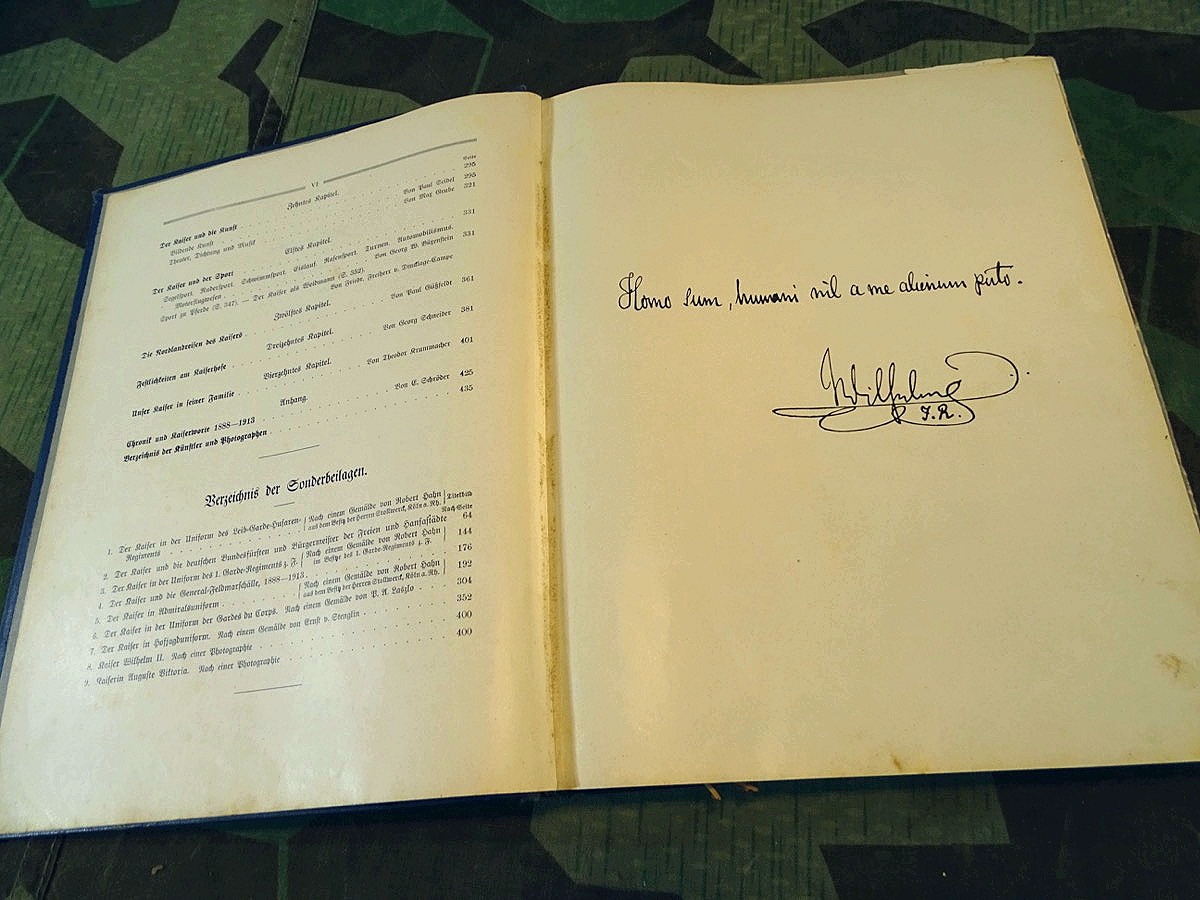 VI
Seite
Zehntes Kapitel.
295
Der Kaiser und die Kunst
Bildende Kunst Von Paul Seidel 295
Theater, Dichtung und Musik Von Max Grube 321
Elftes Kapitel.
Der Kaiser und der Sport 331
Segelsport. Rudersport. Schwimmsport. Eislauf. Rasensport. Turnen. Automobilismus.
Motorflugwesen Von Georg W. Büxenstein 331
Sport zu Pferde (S. 347). — Der Kaiser als Weidmann (S. 352). Von Friedr. Freiherr v. Dincklage-Campe
Zwölftes Kapitel.
Die Nordlandreisen des Kaisers Von Paul Güßfeldt 361
Dreizehntes Kapitel.
Festlichkeiten am Kaiserhofe Von Georg Schneider 381
Vierzehntes Kapitel.
Unser Kaiser in seiner Familie Von Theodor Krummacher 401
Anhang.
Chronik und Kaiserworte 1888—1913 Von C. Schröder 425
Verzeichnis der Künstler und Photographen 435
Verzeichnis der Sonderbeilagen.
1. Der Kaiser in der Uniform des Leib-Garde-Husaren-Regiments Nach einem Gemälde von Robert Hahn aus dem Besitz der Herren Stollwerck, Köln a. Rh. Titelbild
Nach Seite
2. Der Kaiser und die deutschen Bundesfürsten und Bürgermeister der Freien und Hansastädte 64
3. Der Kaiser in der Uniform des 1. Garde-Regiments z. F. Nach einem Gemälde von Robert Hahn im Besitze des 1. Garde-Regiments z. F. 144
4. Der Kaiser und die General-Feldmarschälle, 1888—1913 176
5. Der Kaiser in Admiralsuniform Nach einem Gemälde von Robert Hahn aus dem Besitz der Herren Stollwerck, Köln a. Rh. 192
6. Der Kaiser in der Uniform der Gardes du Corps. Nach einem Gemälde von P. A. Laszlo 304
7. Der Kaiser in Hofjagduniform. Nach einem Gemälde von Ernst v. Stenglin 352
8. Kaiser Wilhelm II. Nach einer Photographie 400
9. Kaiserin Auguste Viktoria. Nach einer Photographie 400
Homo sum, humani nil a me alienum puto.
Wilhelm
I.R.